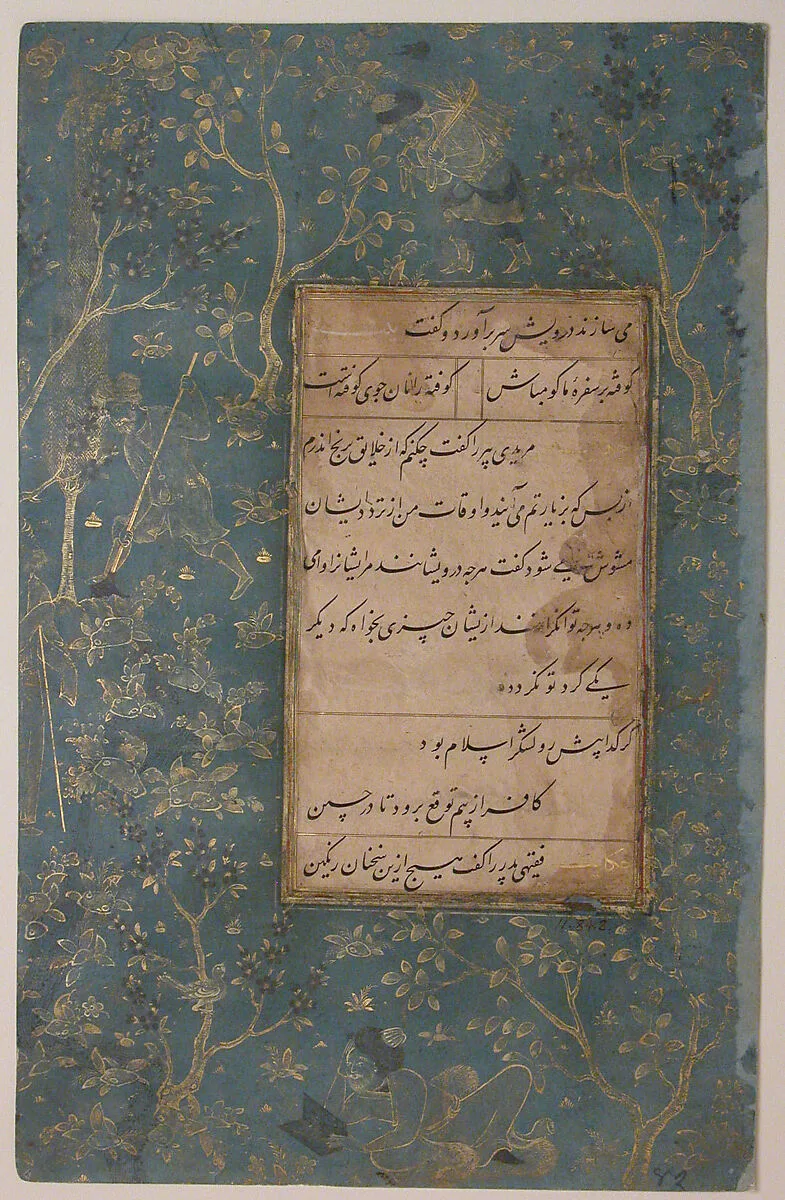 می سازند درویش سر برآورد و گفت
کوفته بر سفرهٔ ما گو مباش کوفته را نان جوی کوفته است
مریدی پیر را گفت چکنم که از خلایق برنج اندرم
از بس که بزیارتم می آیند و اوقات من از تردد ایشان
مشوش می شود گفت هرچه درویشانند مر ایشانرا وامی
ده و هرچه توانگرانند از یشان چیزی بخواه که دیگر
یکی گرد تو نگردد
گر گدا پیش رو لشکر اسلام بود
کافر از بیم توقع برود تا در چین
حکایت فقیهی پدر را گفت هیچ ازین سخنان رنگین
82